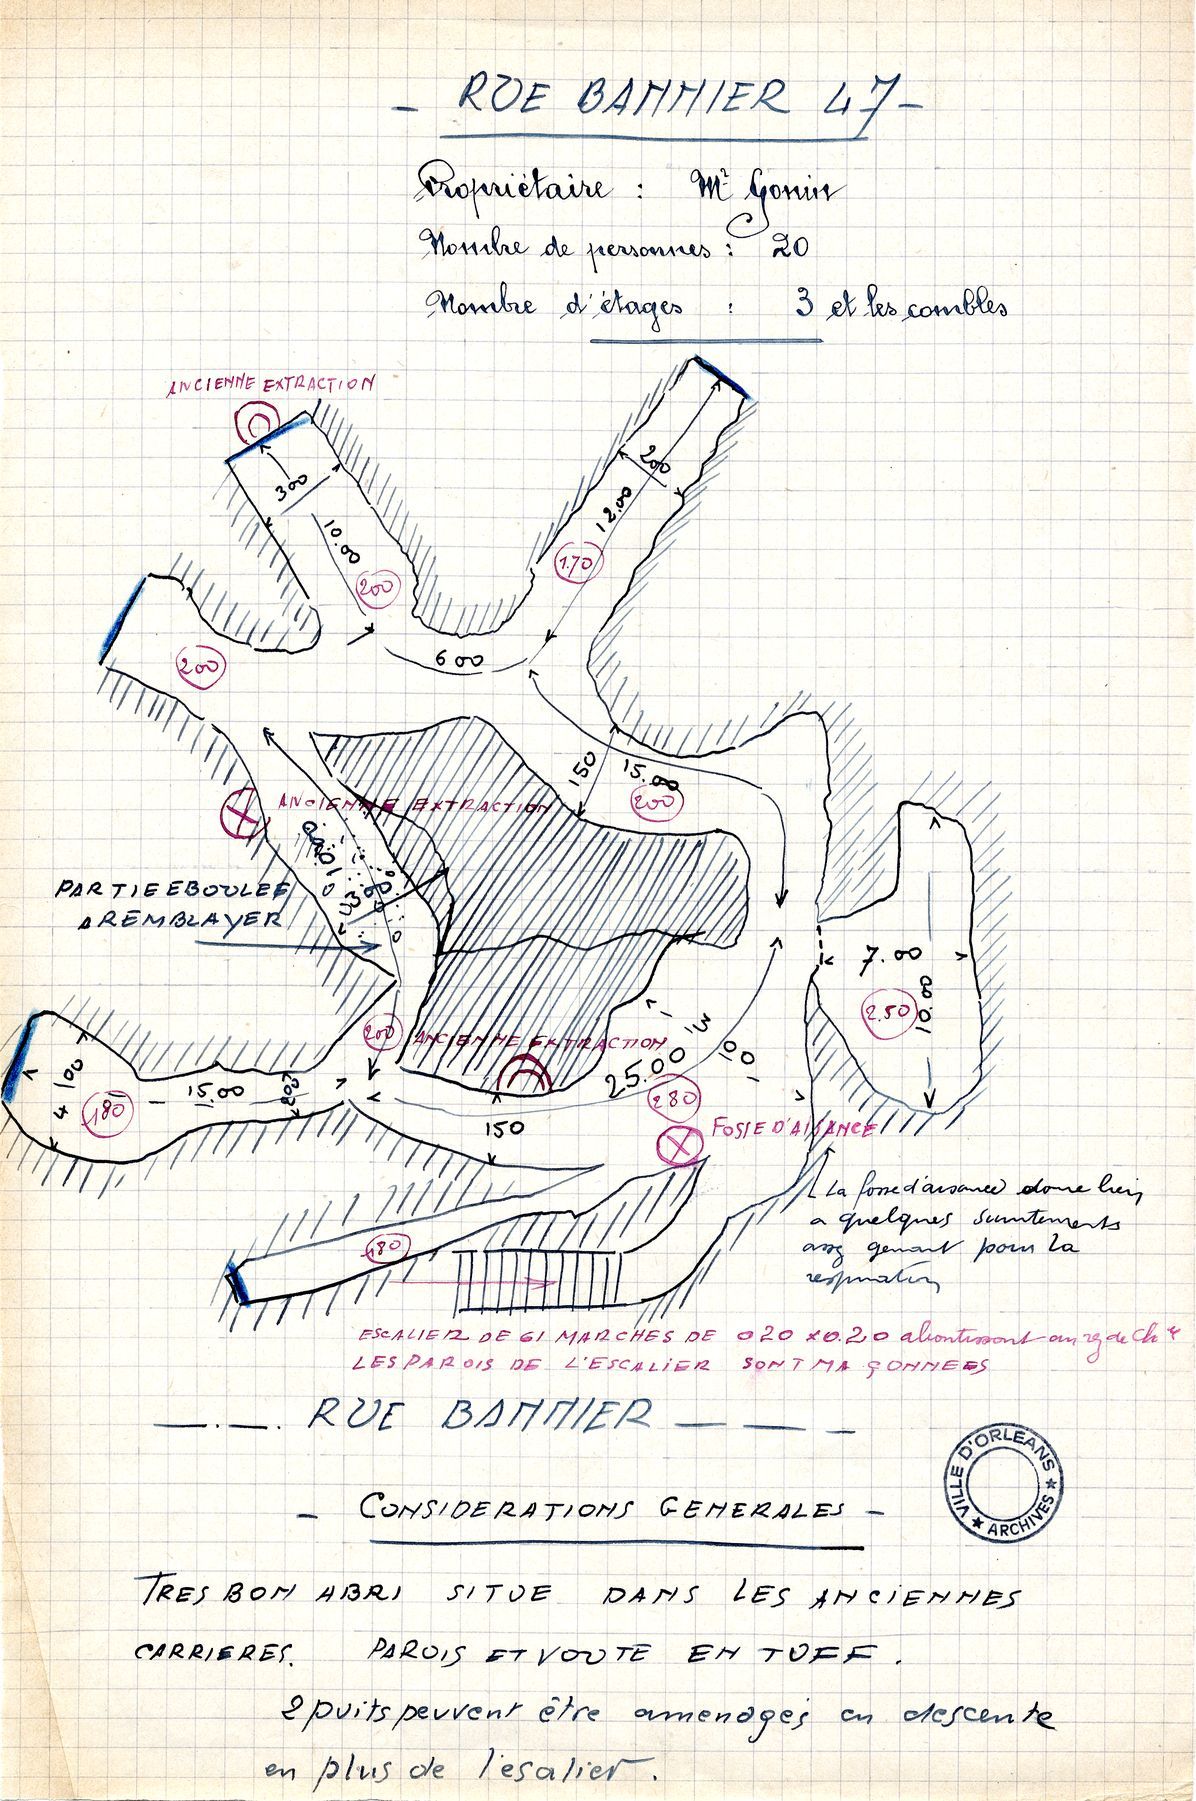 - RUE BANNIER 47 -
Propriétaire : Mr Gonin
Nombre de personnes : 20
Nombre d'étages : 3 et les combles
ANCIENNE EXTRACTION
300
10.00
200
200
12.00
1.70
600
200
150
15.00
200
ANCIENNE EXTRACTION
PARTIE EBOULEE
A REMBLAYER
7.00
2.50
10.00
200
ANCIENNE EXTRACTION
4 00
180
15.00
25.00
280
150
FOSSE D'AISANCE
La fosse d'aisance donne lieu
a quelques suintements
assez genant pour la
respiration
180
ESCALIER DE 61 MARCHES DE 020 x 0.20 aboutissant au rez de Ch
LES PAROIS DE L'ESCALIER SONT MAÇONNEES
— . — . RUE BANNIER — — —
VILLE D'ORLEANS
★ ARCHIVES ★
- CONSIDERATIONS GENERALES -
TRES BON ABRI SITUE DANS LES ANCIENNES
CARRIERES. PAROIS ET VOUTE EN TUFF.
2 puits peuvent être amenagés en descente
en plus de l'esalier.